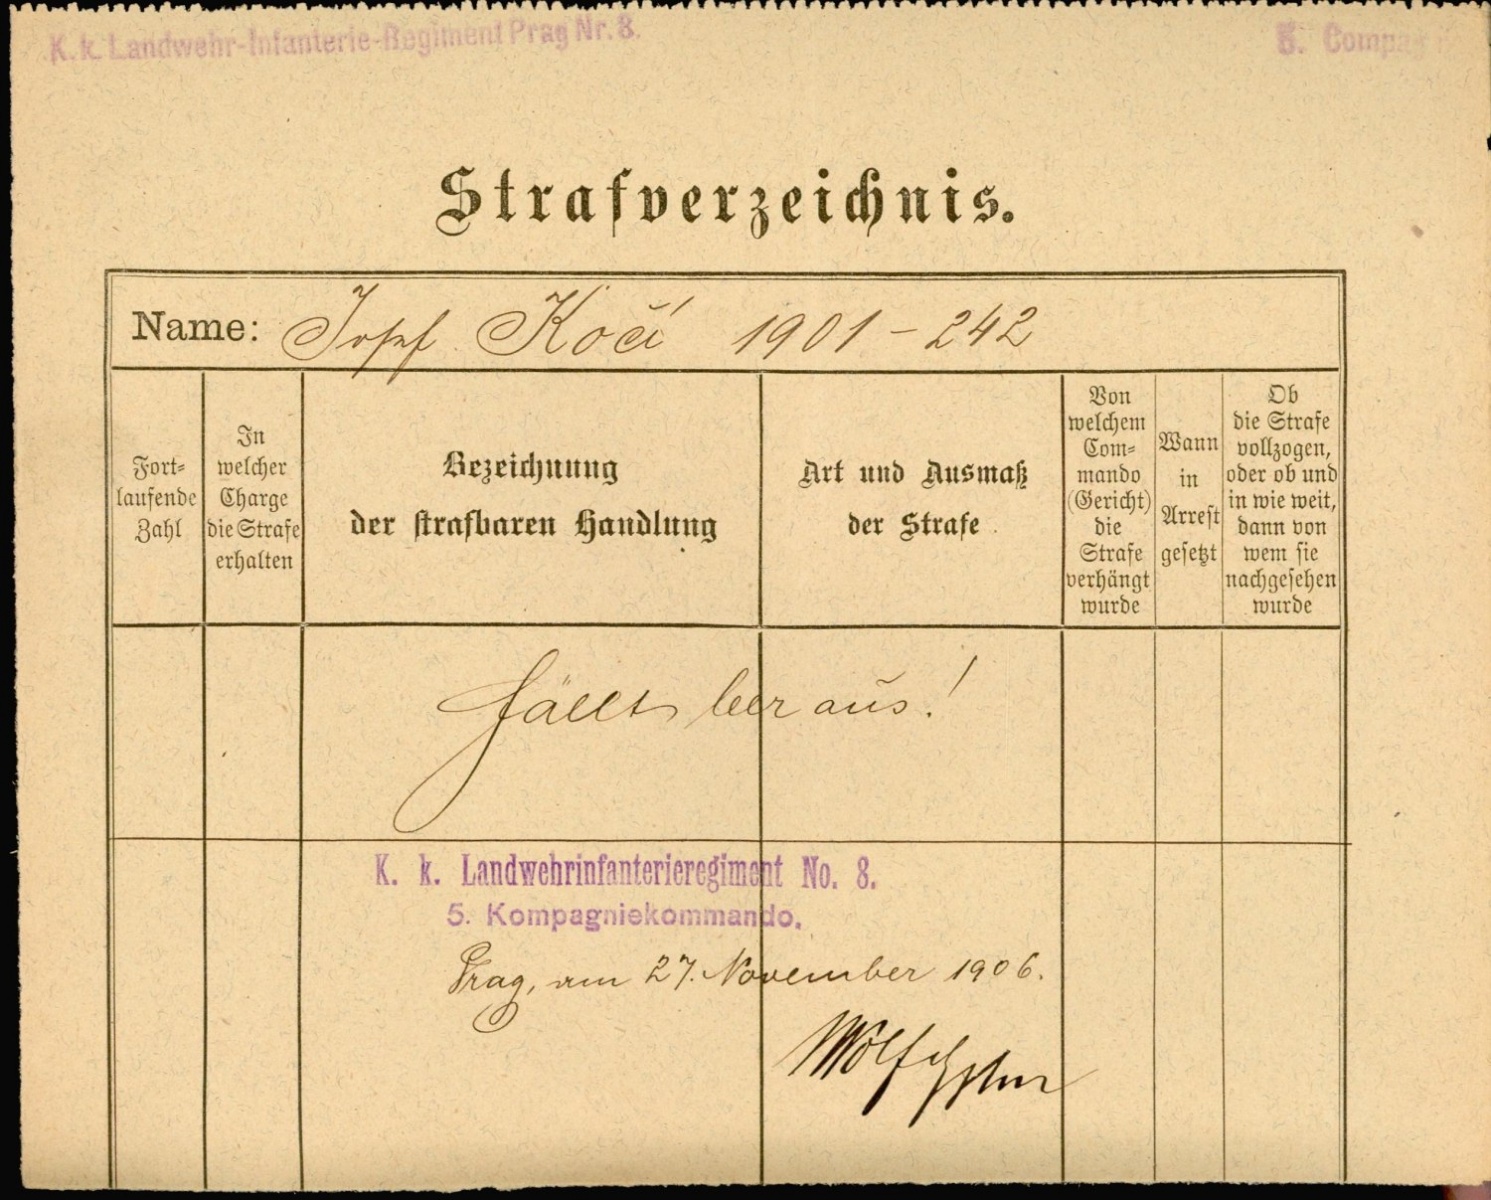 K. k. Landwehr-Infanterie-Regiment Prag Nr. 8.
5. Compag
Strafverzeichnis.
Name: Josef Kočí 1901-242
Fort-
laufende
Zahl
In
welcher
Charge
die Strafe
erhalten
Bezeichnung
der strafbaren Handlung
Art und Ausmaß
der Strafe
Von
welchem
Com-
mando
(Gericht)
die
Strafe
verhängt
wurde
Wann
in
Arrest
gesetzt
Ob
die Strafe
vollzogen,
oder ob und
in wie weit,
dann von
wem sie
nachgesehen
wurde
fällt leer aus!
K. k. Landwehrinfanterieregiment No. 8.
5. Kompagniekommando.
Prag, am 27. November 1906.